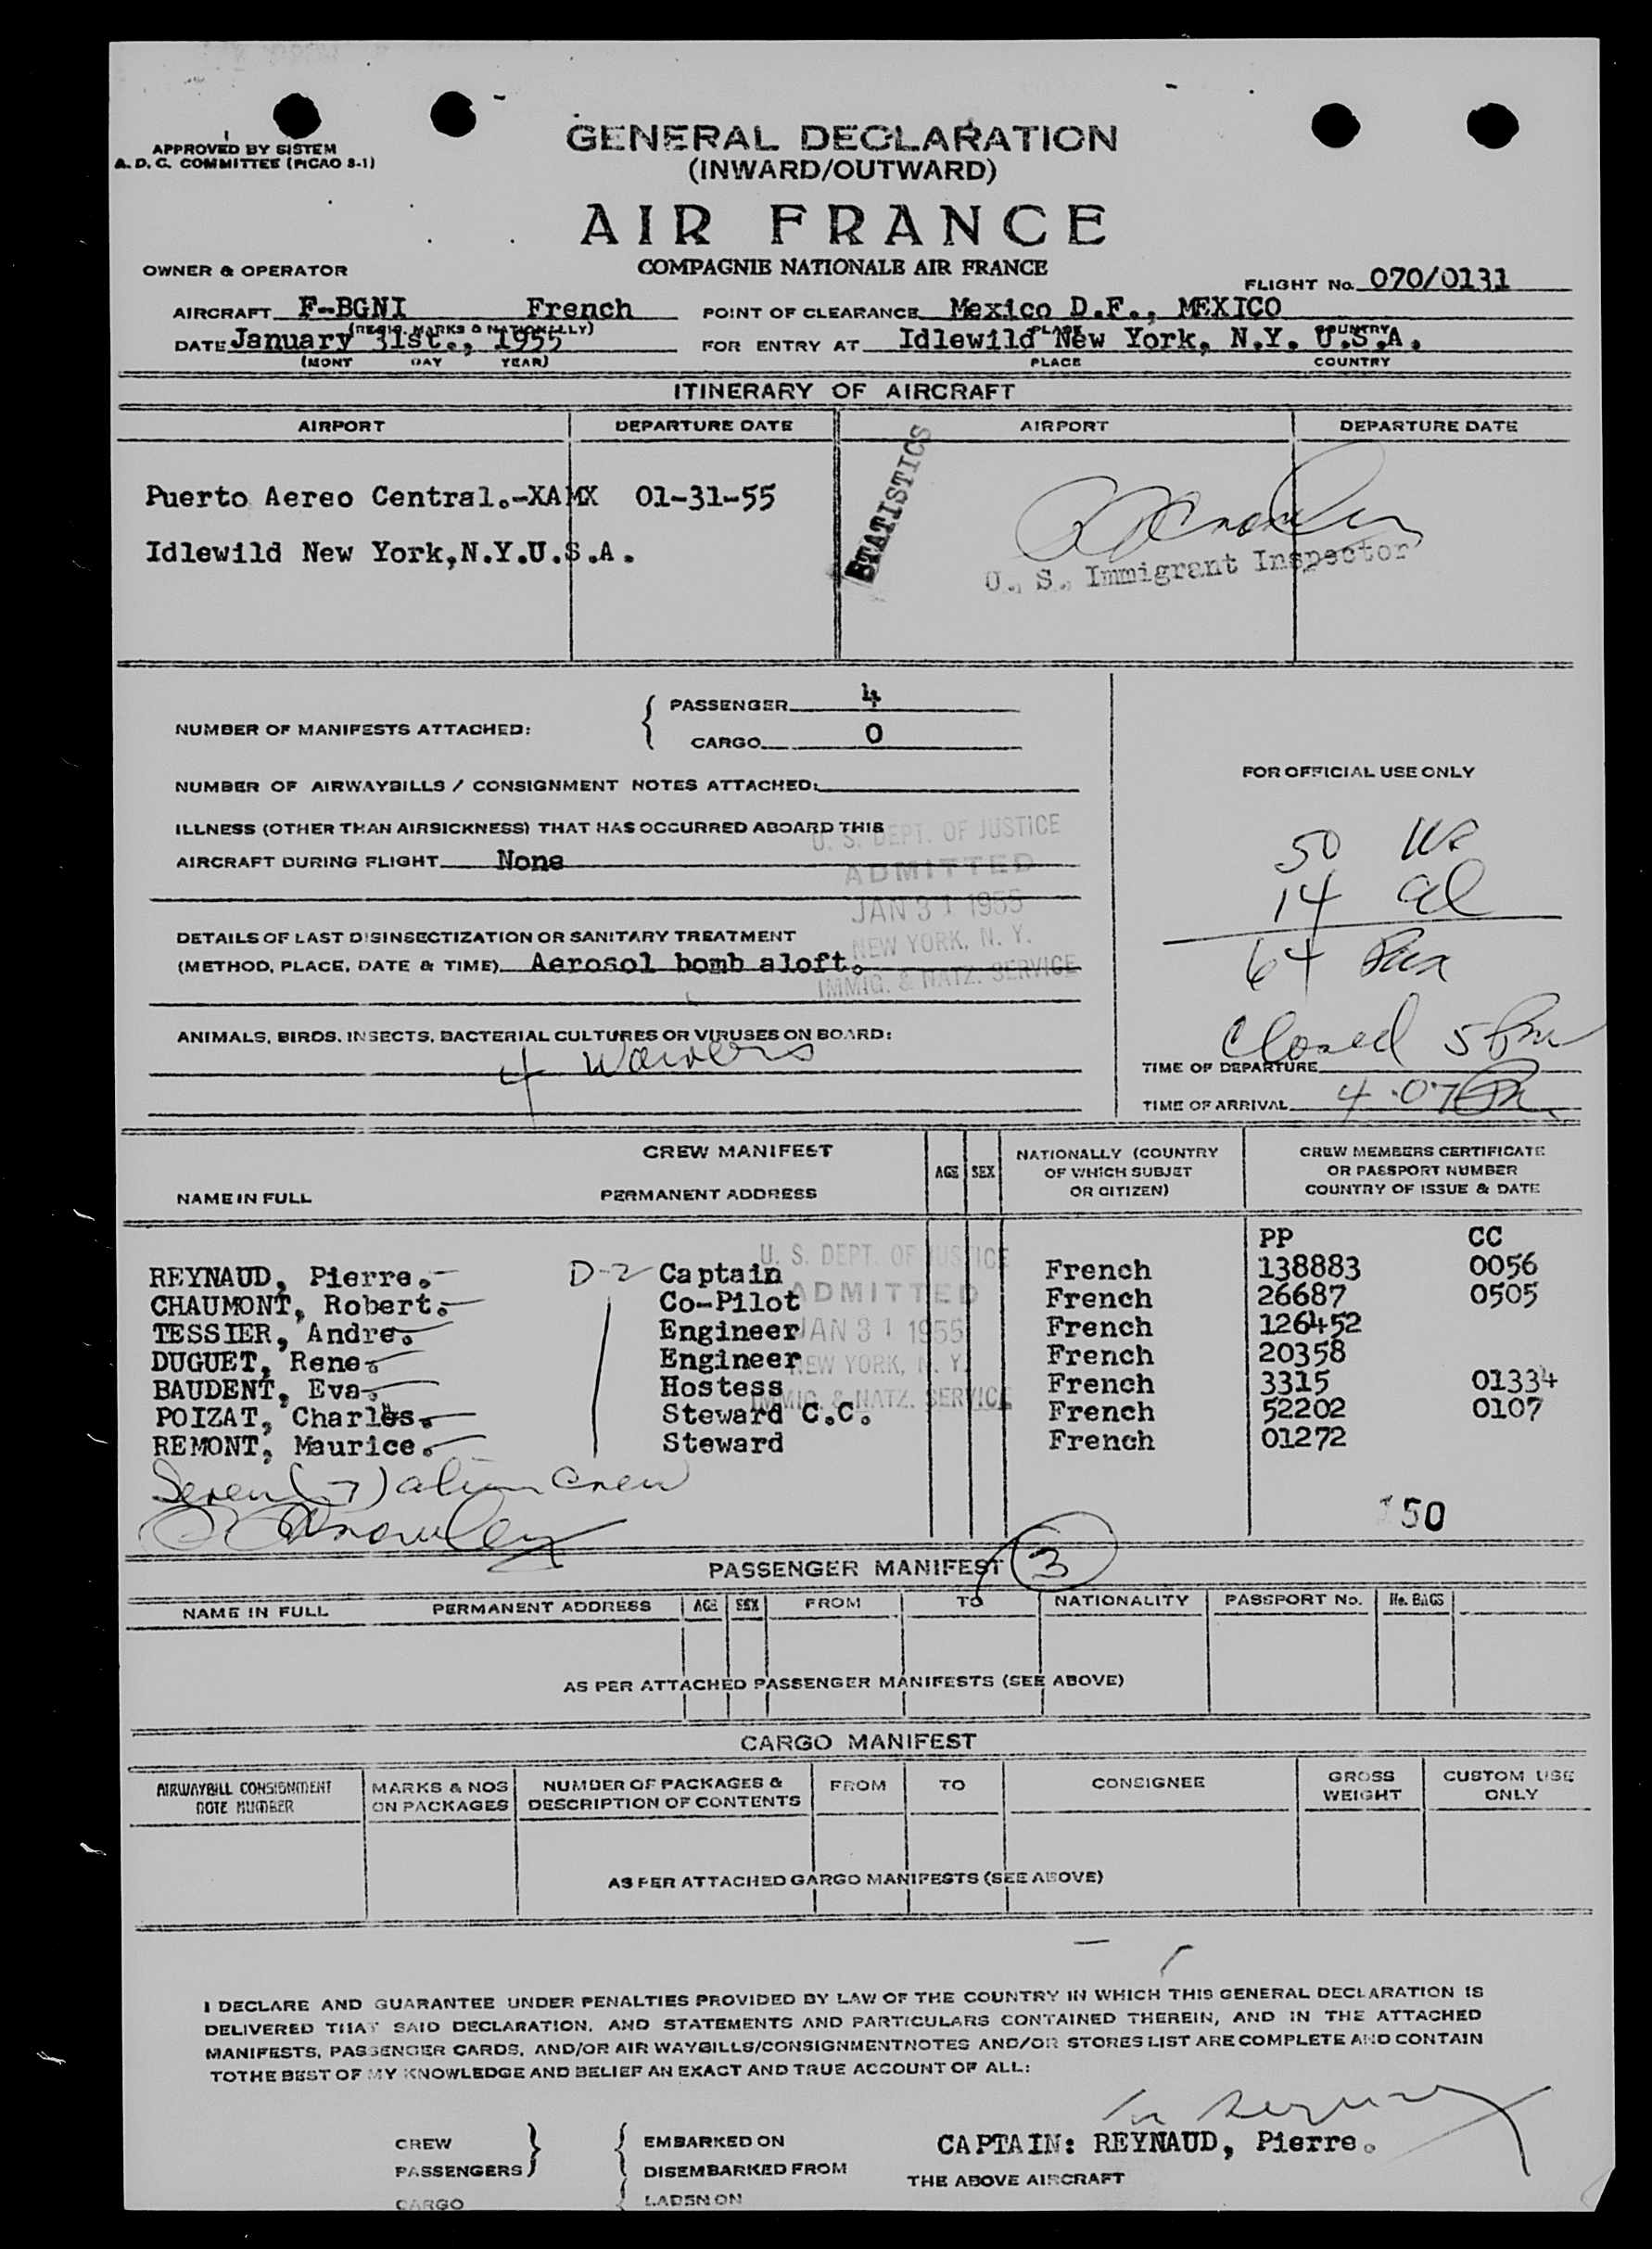 APPROVED BY SISTEM
A. D. C. COMMITTEE (PICAO S-1)
GENERAL DECLARATION
(INWARD/OUTWARD)
AIR FRANCE
OWNER & OPERATOR
COMPAGNIE NATIONALE AIR FRANCE
FLIGHT No. 070/0131
AIRCRAFT F-BGNI French
POINT OF CLEARANCE Mexico D.F., MEXICO
(REGIS. MARKS & NATIONALLY)
PLACE COUNTRY
DATE January 31st., 1955
FOR ENTRY AT Idlewild New York, N.Y. U.S.A.
(MONT DAY YEAR)
PLACE COUNTRY
ITINERARY OF AIRCRAFT
AIRPORT DEPARTURE DATE AIRPORT DEPARTURE DATE
STATISTICS
Puerto Aereo Central.-XAMX 01-31-55
Idlewild New York,N.Y.U.S.A.
U. S. Immigrant Inspector
NUMBER OF MANIFESTS ATTACHED:
PASSENGER 4
CARGO 0
FOR OFFICIAL USE ONLY
NUMBER OF AIRWAYBILLS / CONSIGNMENT NOTES ATTACHED:
ILLNESS (OTHER THAN AIRSICKNESS) THAT HAS OCCURRED ABOARD THIS
AIRCRAFT DURING FLIGHT None
U. S. DEPT. OF JUSTICE
ADMITTED
JAN 31 1955
NEW YORK, N. Y.
IMMIG. & NATZ. SERVICE
50
14 al
64 Pax
DETAILS OF LAST DISINSECTIZATION OR SANITARY TREATMENT
(METHOD, PLACE, DATE & TIME) Aerosol bomb aloft.
ANIMALS, BIRDS, INSECTS, BACTERIAL CULTURES OR VIRUSES ON BOARD:
4 Waivers
Closed 5 pm
TIME OF DEPARTURE
TIME OF ARRIVAL 4.07 Pm
CREW MANIFEST
NAME IN FULL
PERMANENT ADDRESS
AGE
SEX
NATIONALLY (COUNTRY
OF WHICH SUBJET
OR CITIZEN)
CREW MEMBERS CERTIFICATE
OR PASSPORT NUMBER
COUNTRY OF ISSUE & DATE
PP CC
REYNAUD, Pierre. D-2 Captain French 138883 0056
CHAUMONT, Robert. Co-Pilot French 26687 0505
TESSIER, Andre. Engineer French 126452
DUGUET, Rene. Engineer French 20358
BAUDENT, Eva. Hostess French 3315 01334
POIZAT, Charles. Steward C.C. French 52202 0107
REMONT, Maurice. Steward French 01272
U. S. DEPT. OF JUSTICE
ADMITTED
JAN 31 1955
NEW YORK, N. Y.
IMMIG. & NATZ. SERVICE
Seven (7) alien crew
150
PASSENGER MANIFEST 3
NAME IN FULL PERMANENT ADDRESS AGE SEX FROM TO NATIONALITY PASSPORT No. No. BAGS
AS PER ATTACHED PASSENGER MANIFESTS (SEE ABOVE)
CARGO MANIFEST
AIRWAYBILL CONSIGNMENT
NOTE NUMBER
MARKS & NOS
ON PACKAGES
NUMBER OF PACKAGES &
DESCRIPTION OF CONTENTS
FROM
TO
CONSIGNEE
GROSS
WEIGHT
CUSTOM USE
ONLY
AS PER ATTACHED GARGO MANIFESTS (SEE ABOVE)
I DECLARE AND GUARANTEE UNDER PENALTIES PROVIDED BY LAW OF THE COUNTRY IN WHICH THIS GENERAL DECLARATION IS
DELIVERED THAT SAID DECLARATION, AND STATEMENTS AND PARTICULARS CONTAINED THEREIN, AND IN THE ATTACHED
MANIFESTS, PASSENGER CARDS, AND/OR AIR WAYBILLS/CONSIGNMENTNOTES AND/OR STORES LIST ARE COMPLETE AND CONTAIN
TOTHE BEST OF MY KNOWLEDGE AND BELIEF AN EXACT AND TRUE ACCOUNT OF ALL:
CREW
PASSENGERS
CARGO
EMBARKED ON
DISEMBARKED FROM
LADEN ON
CAPTAIN: REYNAUD, Pierre.
THE ABOVE AIRCRAFT